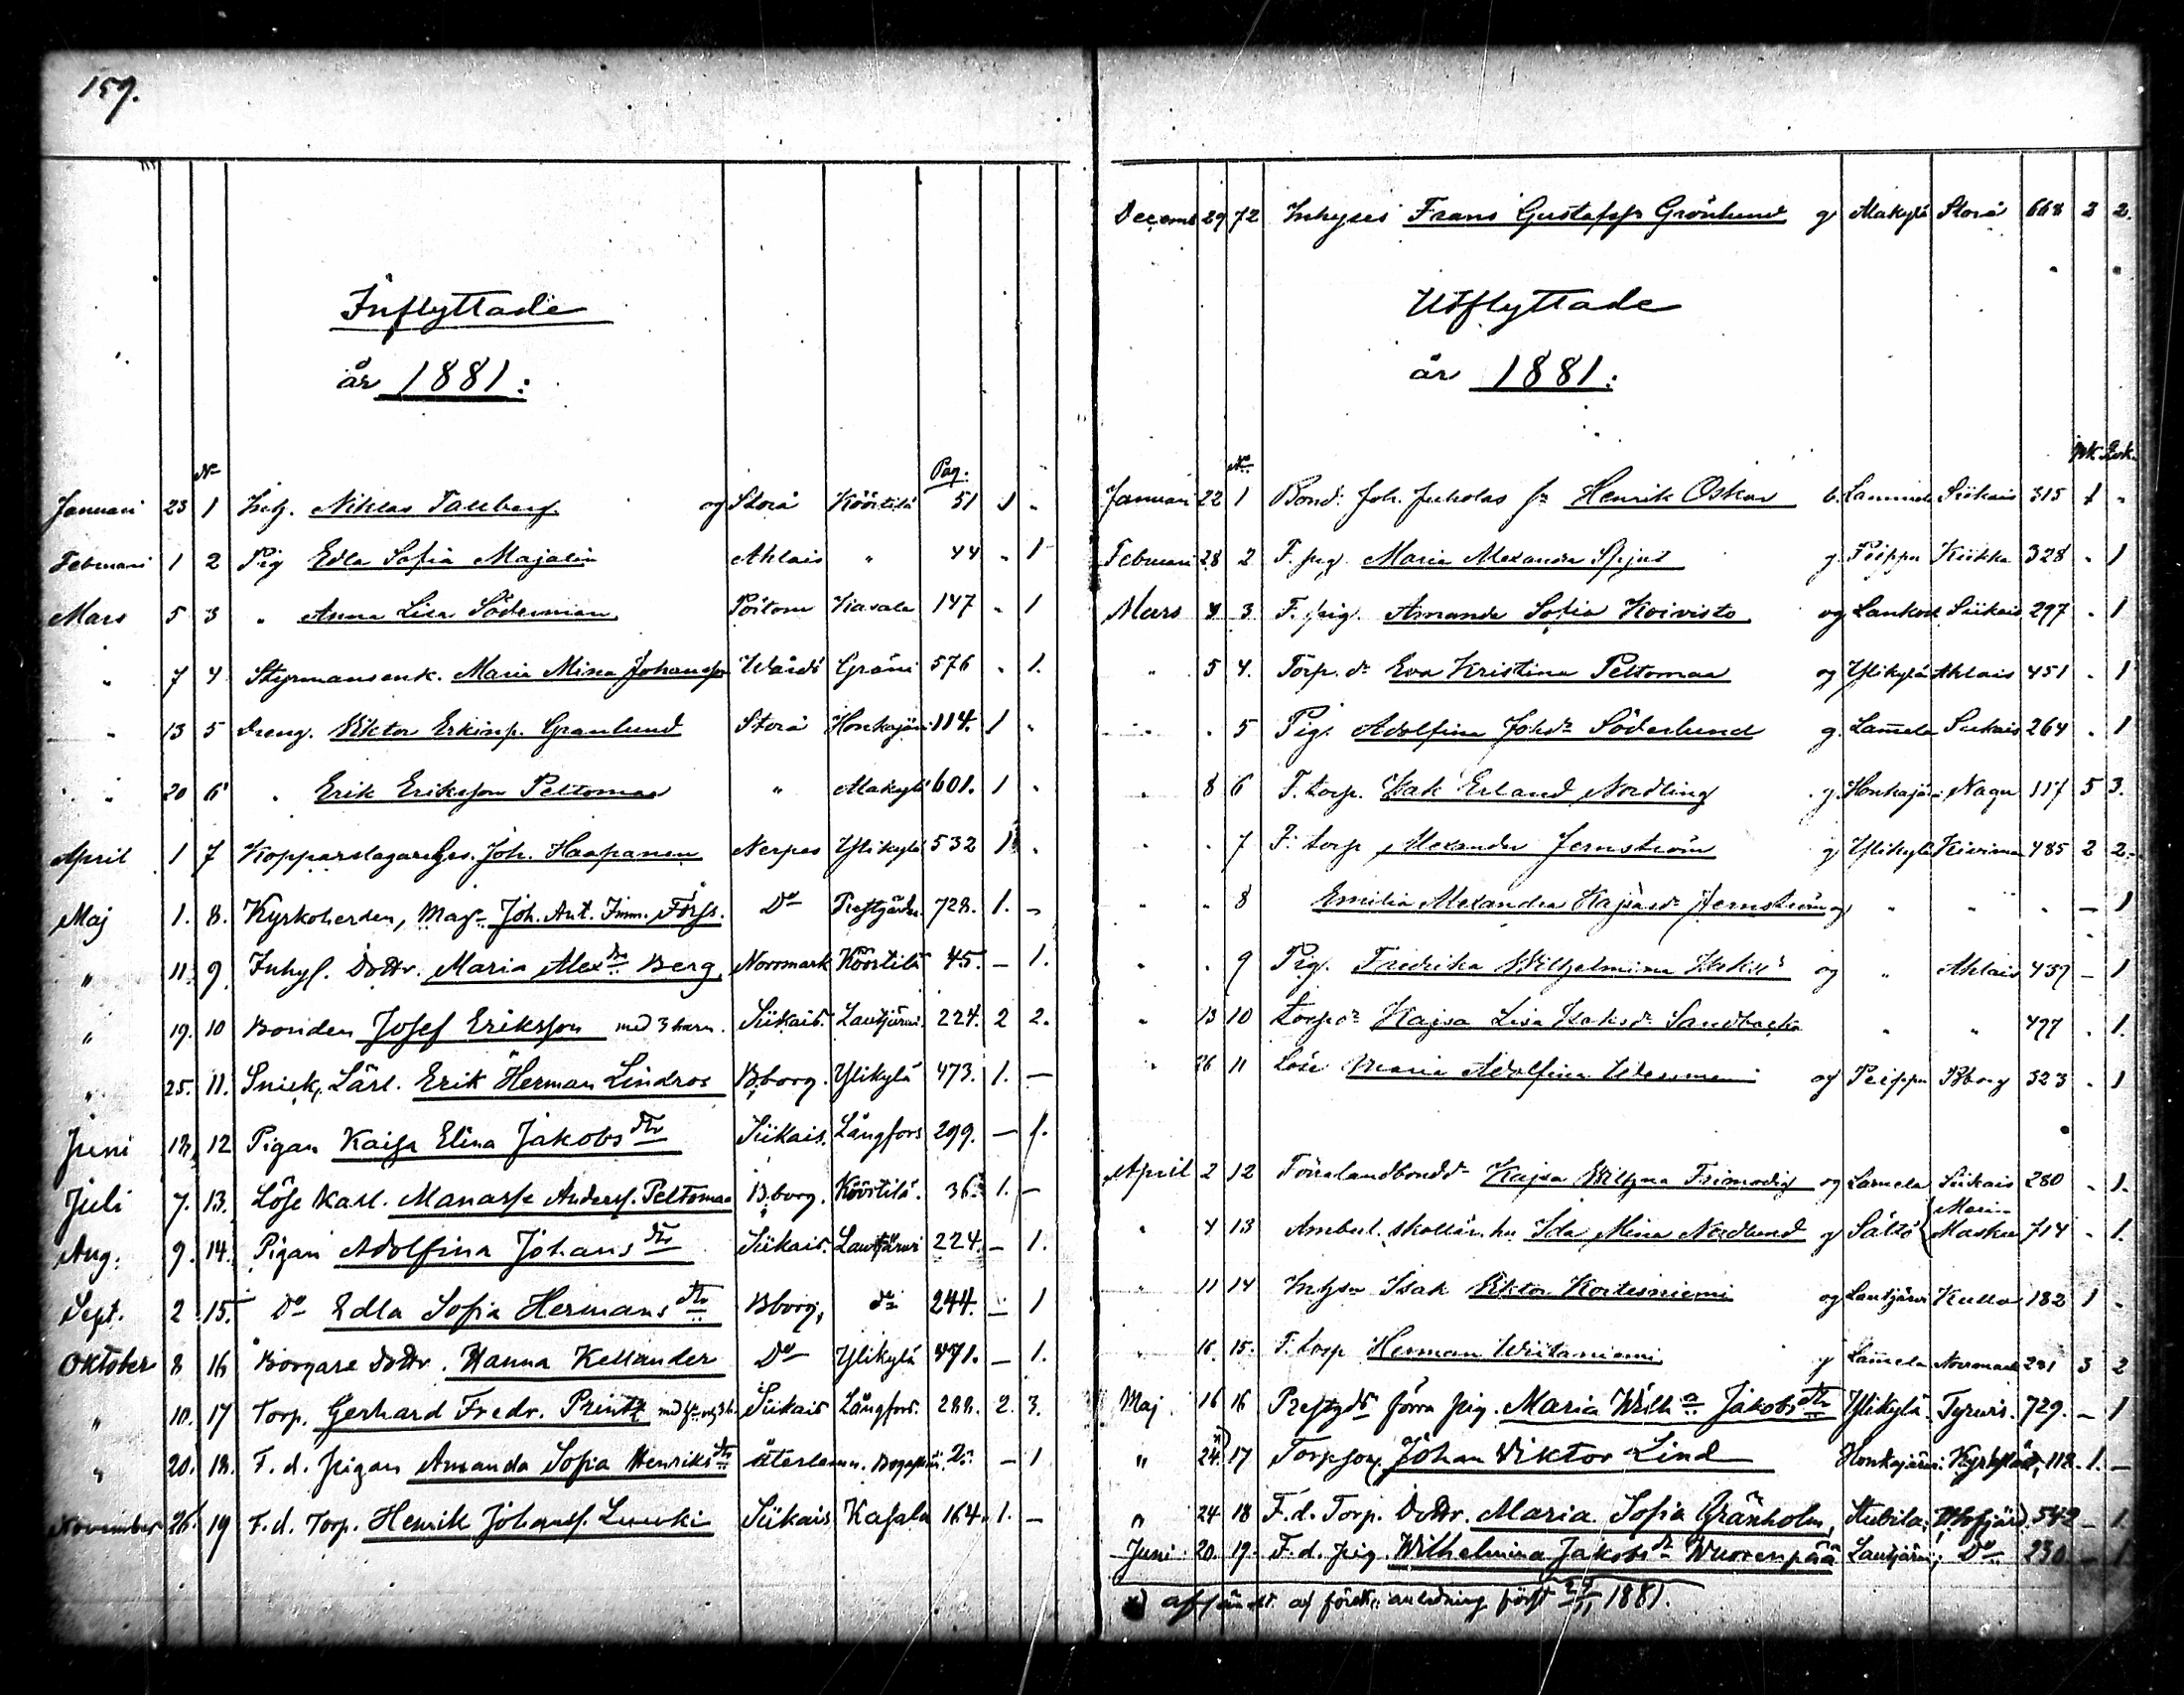 159.
Inflyttade
år 1881:
No Pag.
Januari 23 1 Inh. Niklas Tallberg og Storå Köörtilä 51 1 "
Februari 1 2 Pig Edla Sofia Majalin Ahlais " 44 " 1
Mars 5 3 " Anna Lisa Söderman Pörtom Kasala 147 " 1
" 7 4 Styrmansenk. Maria Mina Johansson Wårdö 576 " 1.
" 13 5 Dreng. Viktor Granlund Storå Honkajärvi 114. 1 "
" 20 6 " Erik Eriksson Peltomaa " Makylä 601. 1 "
April 1 7 Kopparslagare Joh. Haapanen Nerpes Ylikylä 532 1 "
Maj 1. 8. Kyrkoherden, Mag. Joh. Ant. Imm. Förss. Do Prestgården 728. 1. –
" 11. 9 Inhys. Dottr. Maria Alexdr. Berg Norrmark Köörtilä 45. – 1.
" 19. 10 Bonden Josef Eriksson med 3 barn. Siikais. Lautjärvi. 224. 2 2.
" 25. 11. Snick. Lärl. Erik Herman Lindros Bborg. Ylikylä 473. 1. –
Juni 18. 12 Pigan Kaisa Elina Jakobs dtr Siikais. Långfors 299. – 1.
Juli 7. 13. Löse Karl. Manasse Anderss. Peltomaa Bborg. Köörtilä. 36. 1. –
Aug. 9. 14. Pigan Adolfina Johans dtr Siikais. Lautjärvi 224. – 1.
Sept. 2 15. Do Edla Sofia Hermans dtr Bborg, do 244. – 1
Oktober 8 16 Borgare Dottr. Hanna Kellander Do Ylikylä 471. – 1.
" 10. 17 Torp. Gerhard Fredr. Printz Siikais Långfors. 288. 2. 3.
" 20. 18. F. d. pigan Amanda Sofia Henriks dtr – 1
November 26. 19 F. d. Torp. Henrik Johanss. Siikais Kasala 164. 1. –
Decemb 29 72 Inhyses Frans Gustafss Grönlund g Makylä Storå 668 2 2.
Utflyttade
år 1881:
No mk. qvk.
Januari 22 1 Bond. Joh. Juholas sn Henrik Oskar o. Lammela Siikais 315 1 "
Februari 28 2 F. pig. Maria Alexandra g. Peippu Kiikka 328 " 1
Mars 3. F. pig. Amanda Sofia Koivisto og Lankosk Siikais 297 " 1
" 5 4. Torp. dr Eva Kristina Peltomaa og Ylikylä Ahlais 451 " 1
" " 5 Pig. Adolfina Johdr Söderlund g. Lammela Siikais 264 " 1
" 8 6 F. torp. Isak Erland Nordling g. Honkajärvi Nagu 117 5 3.
" " 7 F. torp Alexander Jernström g Ylikylä 485 2 2.
" " 8 Emilia Alexandra Jernström og " " " – 1
" " 9 Pig. Fredrika Wilhelmina og " Ahlais 437 – 1
" 13 10 Torp dr Kajsa Lisa Isaksdr Sandbacka " " 477 " 1.
" 26 11 Löse Maria Adolfina og Peippu Bborg 323 " 1
April 2 12 Kajsa Frimodig og Lamela Siikais 280 " 1.
" 4 13 Ambul. skollär. Ida Mina Nordlund g Sältö Masku 714 " 1.
" 11 14 Inhysn Isak Viktor Kortesniemi og Lautjärvi Kullaa 182 1 "
" 16. 15. F. torp Herman g Lammela Norrmark 231 3 2
Maj 16 16 Prestgds förra pig. Maria Wilha Jakobs dtr Ylikylä. Tyrvis. 729. – 1
" 24 x) 17 Torpson Johan Viktor Lind Honkajärvi. 112. 1. –
" 24 18 F. d. Torp. Dottr. Maria Sofia Granholm, 542 – 1.
Juni 20. 19. F. d. pig. Wilhelmina Jakobs dr Wuorenpää Lautjärvi, Do 230 – 1
x) af anledning först 1881.